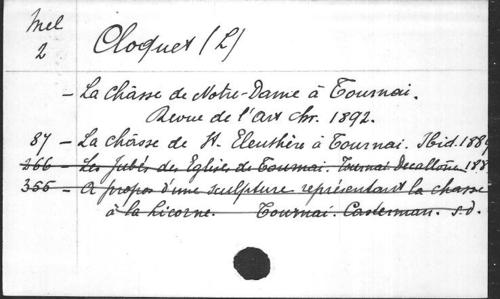 Mel
2
Cloquet (L)
- La Châsse de Notre-Dame à Tournai.
Revue de l'art chr. 1892.
87 - La châsse de St. Eleuthère à Tournai. Ibid. 188
266 - Les Jubés des Eglises de Tournai. Tournai Decallonne 188
355 - A propos d'une sculpture représentant la chasse
à la licorne. Tournai. Casterman. s.d.